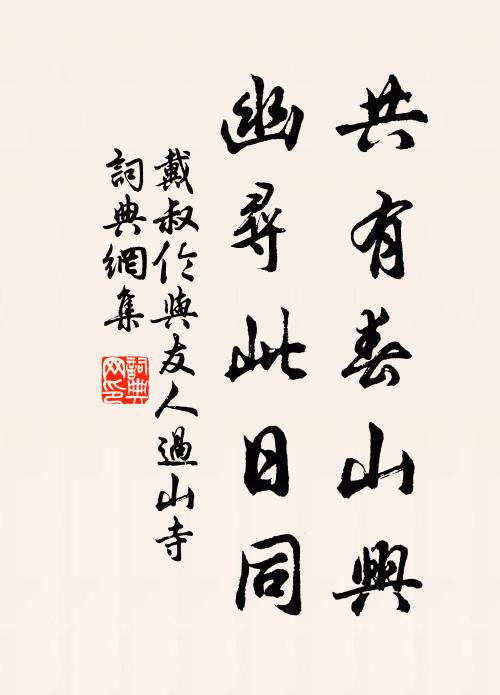 共有春山興
幽尋此日同
戴叔伦與友人過山寺
詞典網集
詞典
网印